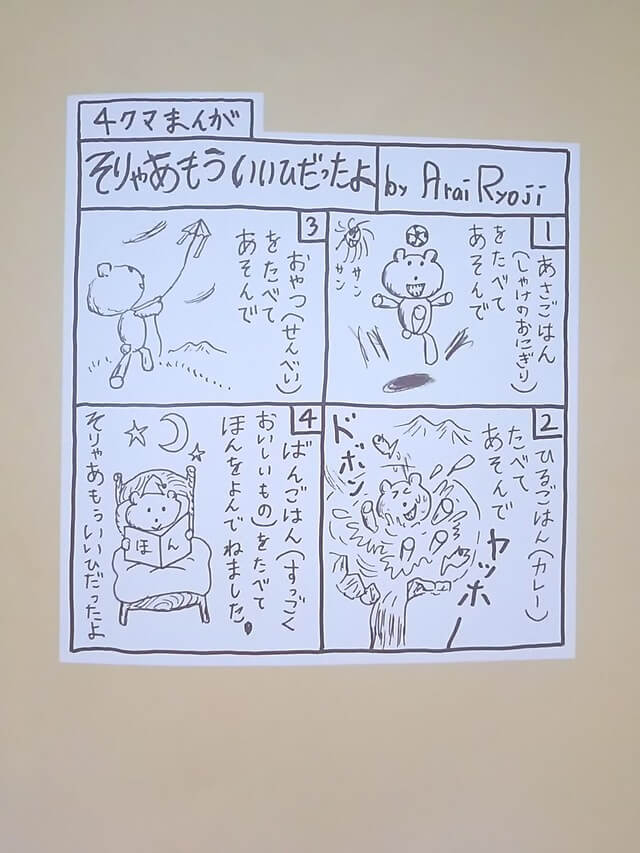 4クマまんが
そりゃあもういいひだったよ
by Arai Ryoji
1
あさごはん
(しゃけのおにぎり)
をたべて
あそんで
サンサン
2
ひるごはん(カレー)
たべて
あそんで
ヤッホー
ドボン
3
おやつ(せんべい)
をたべて
あそんで
4
ばんごはん(すっごく
おいしいもの)をたべて
ほんをよんでねました。
そりゃあもういいひだったよ
ほん